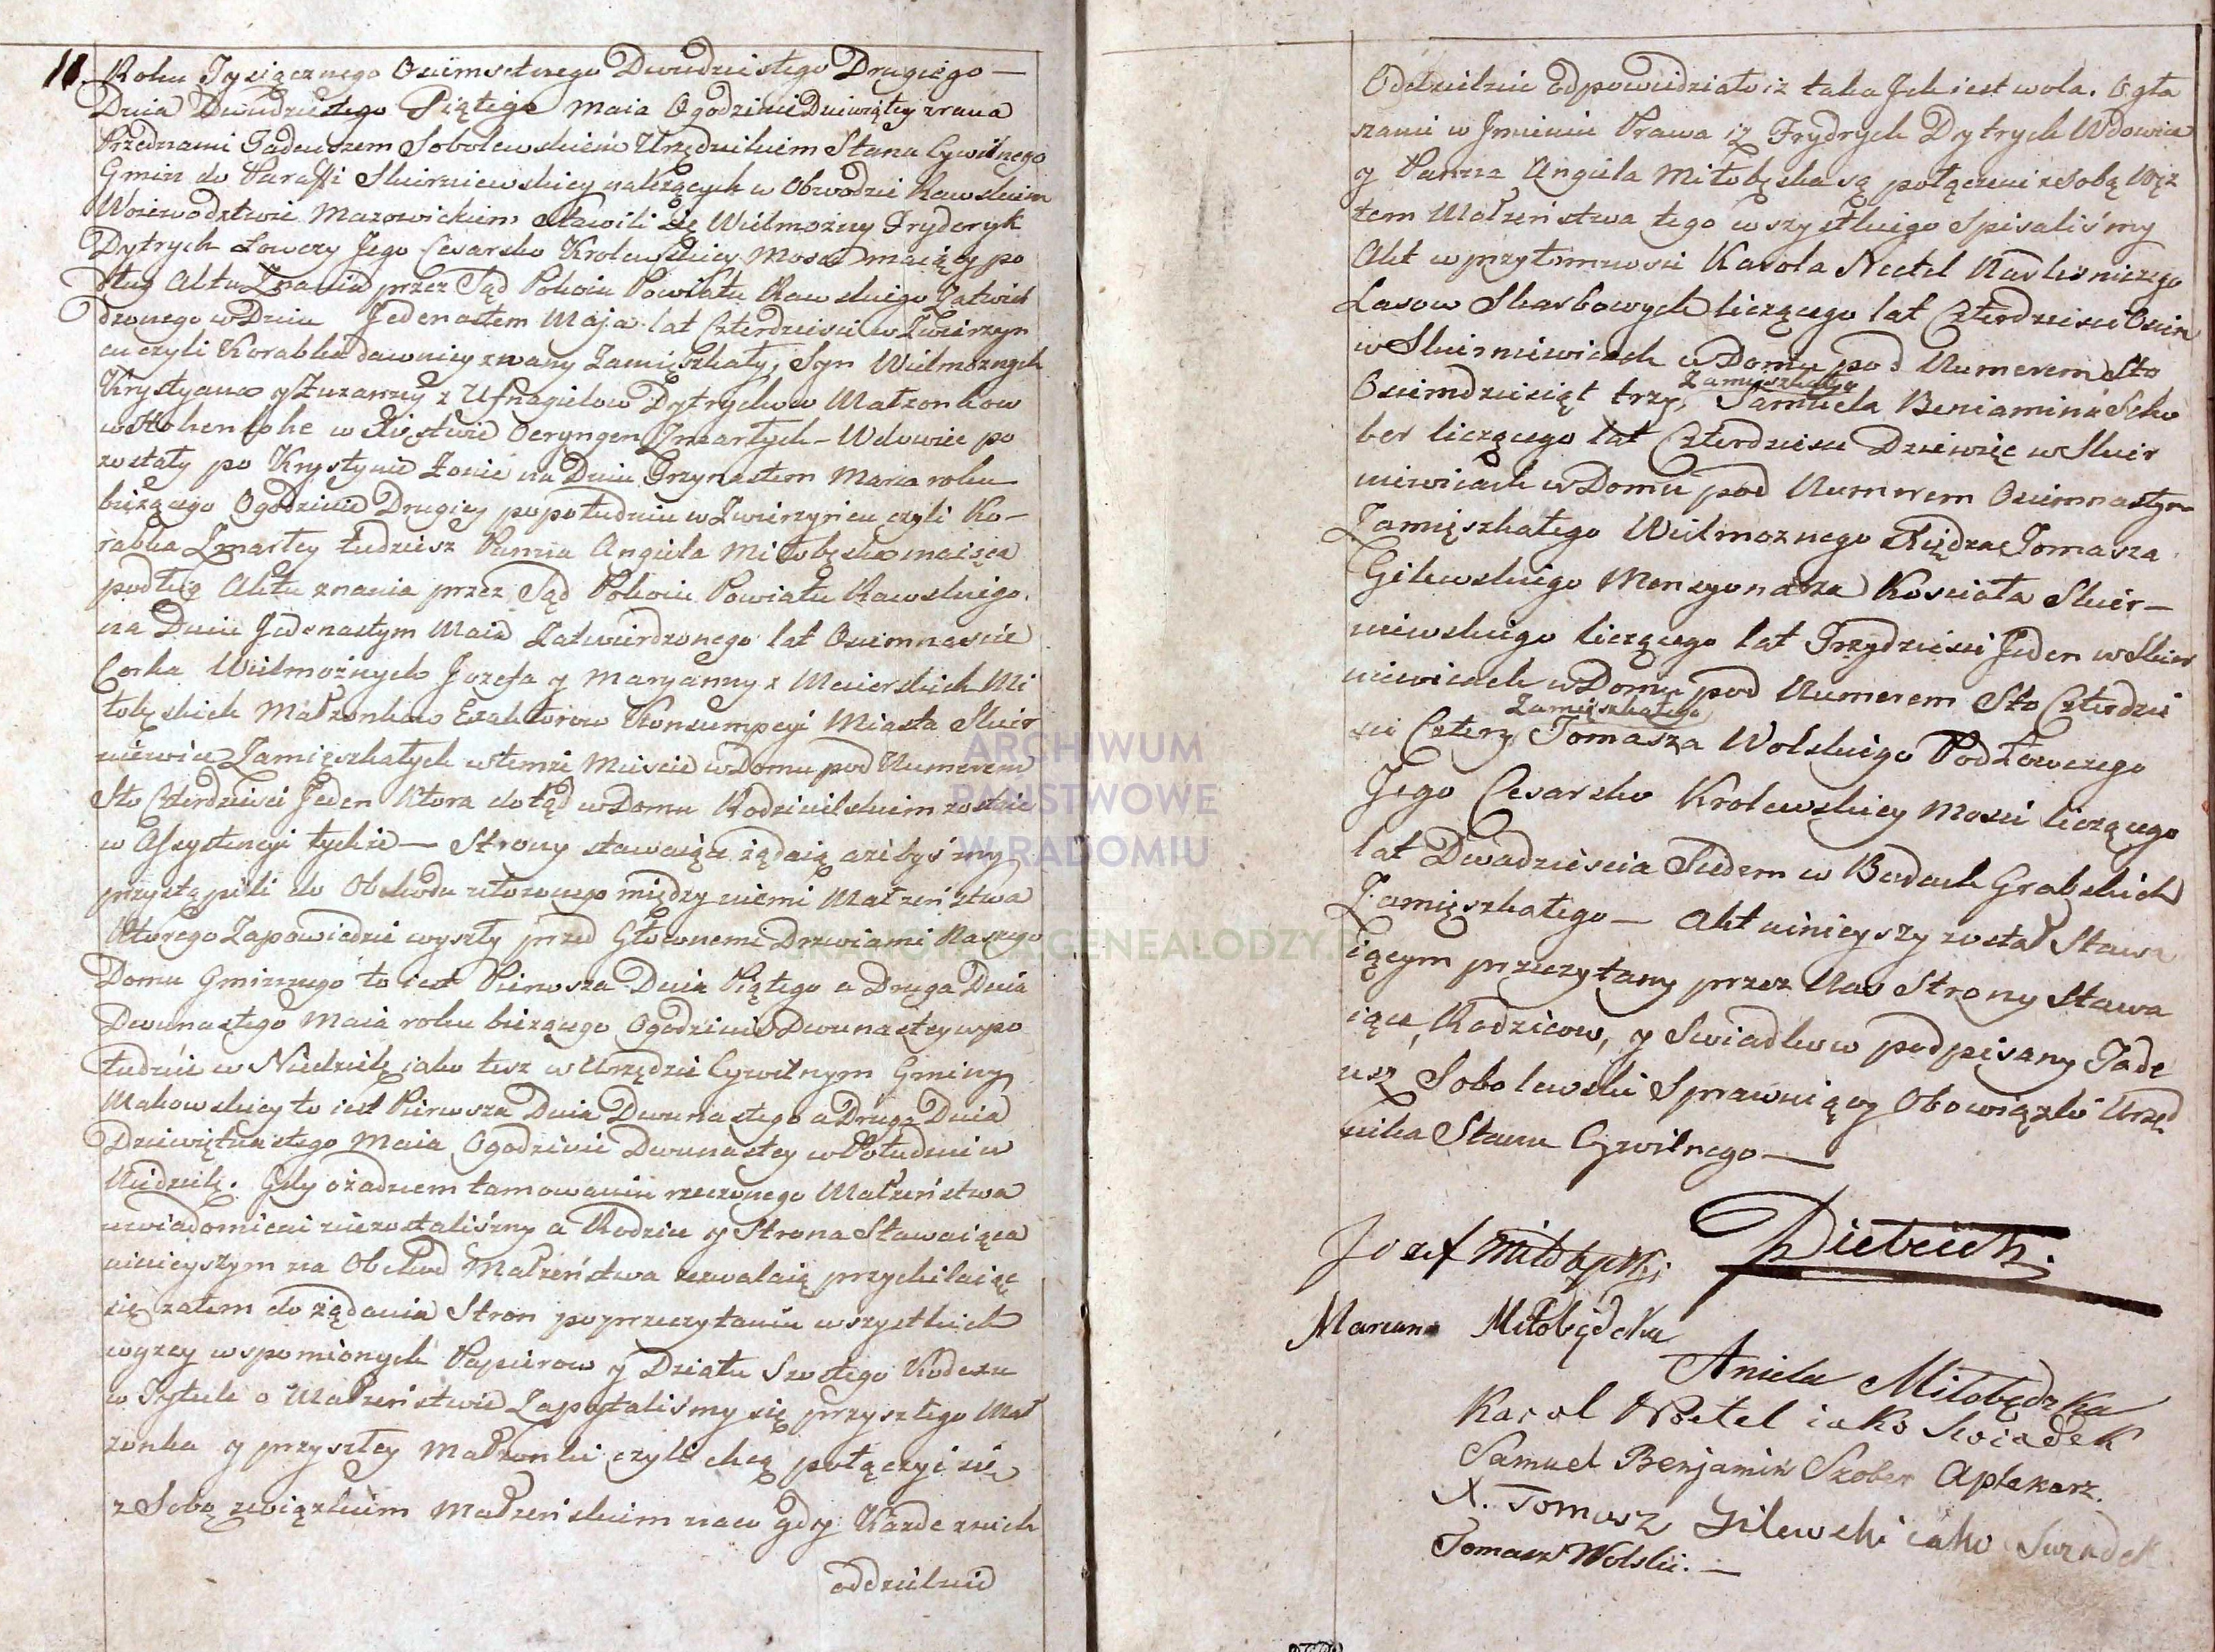 11. Roku Tysiącznego Osiimsetnego Dwudziestego Drugiego —
Dnia Dwudziestego Piątego Maia O godzinie Dziewiątey zrana
Przednami Tadeuszem Sobolewskiem Urzędnikiem Stanu Cywilnego
Gmin do Paraffi Skierniewskiey należących w Obwodzie Rawskiem
Woiewodztwie Mazowieckiem stawili się Wielmożny Fryderyk
Dytrych Łowczy Jego Cesarsko Krolewskiey Mosci maiący po
dług Aktu Znania przez Sąd Pokoiu Powiatu Rawskiego Zatwier
dzonego w Dniu Jedenastem Maja lat Czterdziesci w Zwierzyn
cu czyli Korabku dawniey zwany Zamięszkały, Syn Wielmożnych
Krystyana y Zuzanny z Ufnagielow Dytrychow Małżonkow
w Hohenlohe w Xięstwie Oeryngen Zmarłych — Wdowiec po
zostały po Krystynie Żonie na Dniu Trzynastem Marca roku
bieżącego O godzinie Drugiey popołudniu w Zwierzyńcu czyli Ko-
rabku Zmarłey tudziesz Panna Angiela Miłobęska maiąca
podług Aktu znania przez Sąd Pokoiu Powiatu Rawskiego
na Dniu Jedenastym Maia Zatwierdzonego lat Osiemnascie
Corka Wielmożnych Jozefa y Maryanny z Macierskich Mi
łobęskich Małżonkow Exaktorow Konsumpcyi Miasta Skier
niewice Zamięszkałych w temże Miescie w Domu pod Numerem
Sto Czterdzieści Jeden Ktora dotąd w Domu Rodzicielskiem zostaie
w Assystencyi tychże — Strony stawaiące żądaią ażebyśmy
przystąpili do Obchodu ułożonego między niemi Małżeństwa
Ktorego Zapowiedzie wyszły przed Głownemi Drzwiami Naszego
Domu Gminnego to iest Pierwsza Dnia Piątego a Druga Dnia
Dwunastego Maia roku bieżącego O godzinie Dwunastey w po
łudnie w Niedzielę iako tesz w Urzędzie Cywilnym Gminy
Makowskiey to iest Pierwsza Dnia Dwunastego a Druga Dnia
Dziewiętnastego Maia O godzinie Dwunastey w Południe w
Niedzielę. Gdy o żadnem tamowaniu rzeczonego Małżeństwa
uwiadomieni niezostaliśmy a Rodzice y Strona Stawaiąca
ninieyszym na Obchod Małżeństwa zezwalaią przychilaiąc
się zatem do żądania Stron po przeczytaniu wszystkich
wyżey wspomionych Papierow y Działu Szostego Kodexu
w Tytule o Małżeństwie Zapytaliśmy się przyszłego Mał
żonka y przyszłey Małżonki czyli chcą połączyć się
z Sobą związkiem Małżeńskiem na co gdy Każde z nich
oddzielnie
Oddzielnie odpowiedziało iż taka Ich iest wola. Ogła
szamy w Jmieniu Prawa iż Frydrych Dytrych Wdowiec
y Panna Angiela Miłobęska są połączeni z Sobą Węz
łem Małżeństwa tego wszystkiego Spisaliśmy
Akt w przytomnosci Karola Noetel Nadlesniczego
Lasow Skarbowych liczącego lat Czterdziesci Osiem
w Skierniewicach w Domu pod Numerem Sto
Osiemdziesiąt trzy, Zamięszkałego Samuela Beniamina Szo
ber liczącego lat Czterdziesci Dziewięć w Skier
niewicach w Domu pod Numerem Osiemnastym
Zamięszkałego Wielmożnego Xiędza Tomasza
Gilewskiego Mansyonarza Koscioła Skier-
niewskiego liczącego lat Trzydziesci Jeden w Skier
niewicach w Domu pod Numerem Sto Czterdzie
sci Cztery Zamięszkałego Tomasza Wolskiego PodŁowczego
Jego Cesarsko Krolewskiey Mosci liczącego
lat Dwadziescia Siedem w Budach Grabskich
Zamięszkałego — Akt ninieyszy został Stawa
iącym przeczytany przez Nas Strony Stawa
iące, Rodzicow, y Swiadkow podpisany Tade
usz Sobolewski Sprawuiący Obowiązki Urzęd
nika Stanu Cywilnego —
Jozef Miłobęski Dietrich.
Marianna Miłobędzka
Aniela Miłobędzka
Karol Noetel iako Swiadek
Samuel Benjamin Szober Aptekarz.
X. Tomasz Gilewski iako Swiadek
Tomasz Wolski. —
ARCHIWUM
PAŃSTWOWE
W RADOMIU